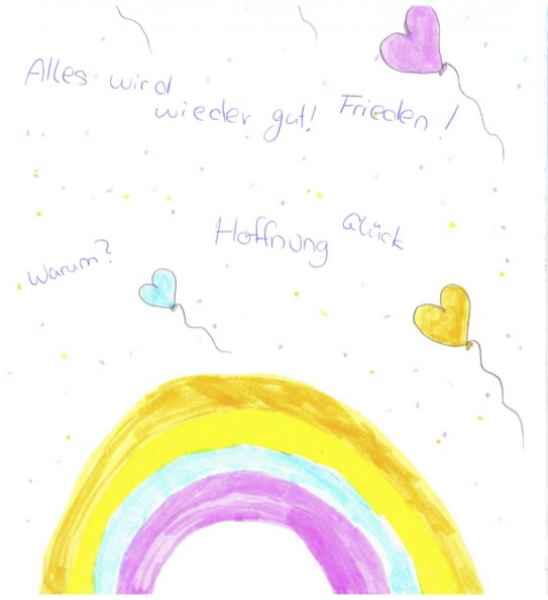 Alles wird
wieder gut!
Frieden!
Glück
Hoffnung
Warum?